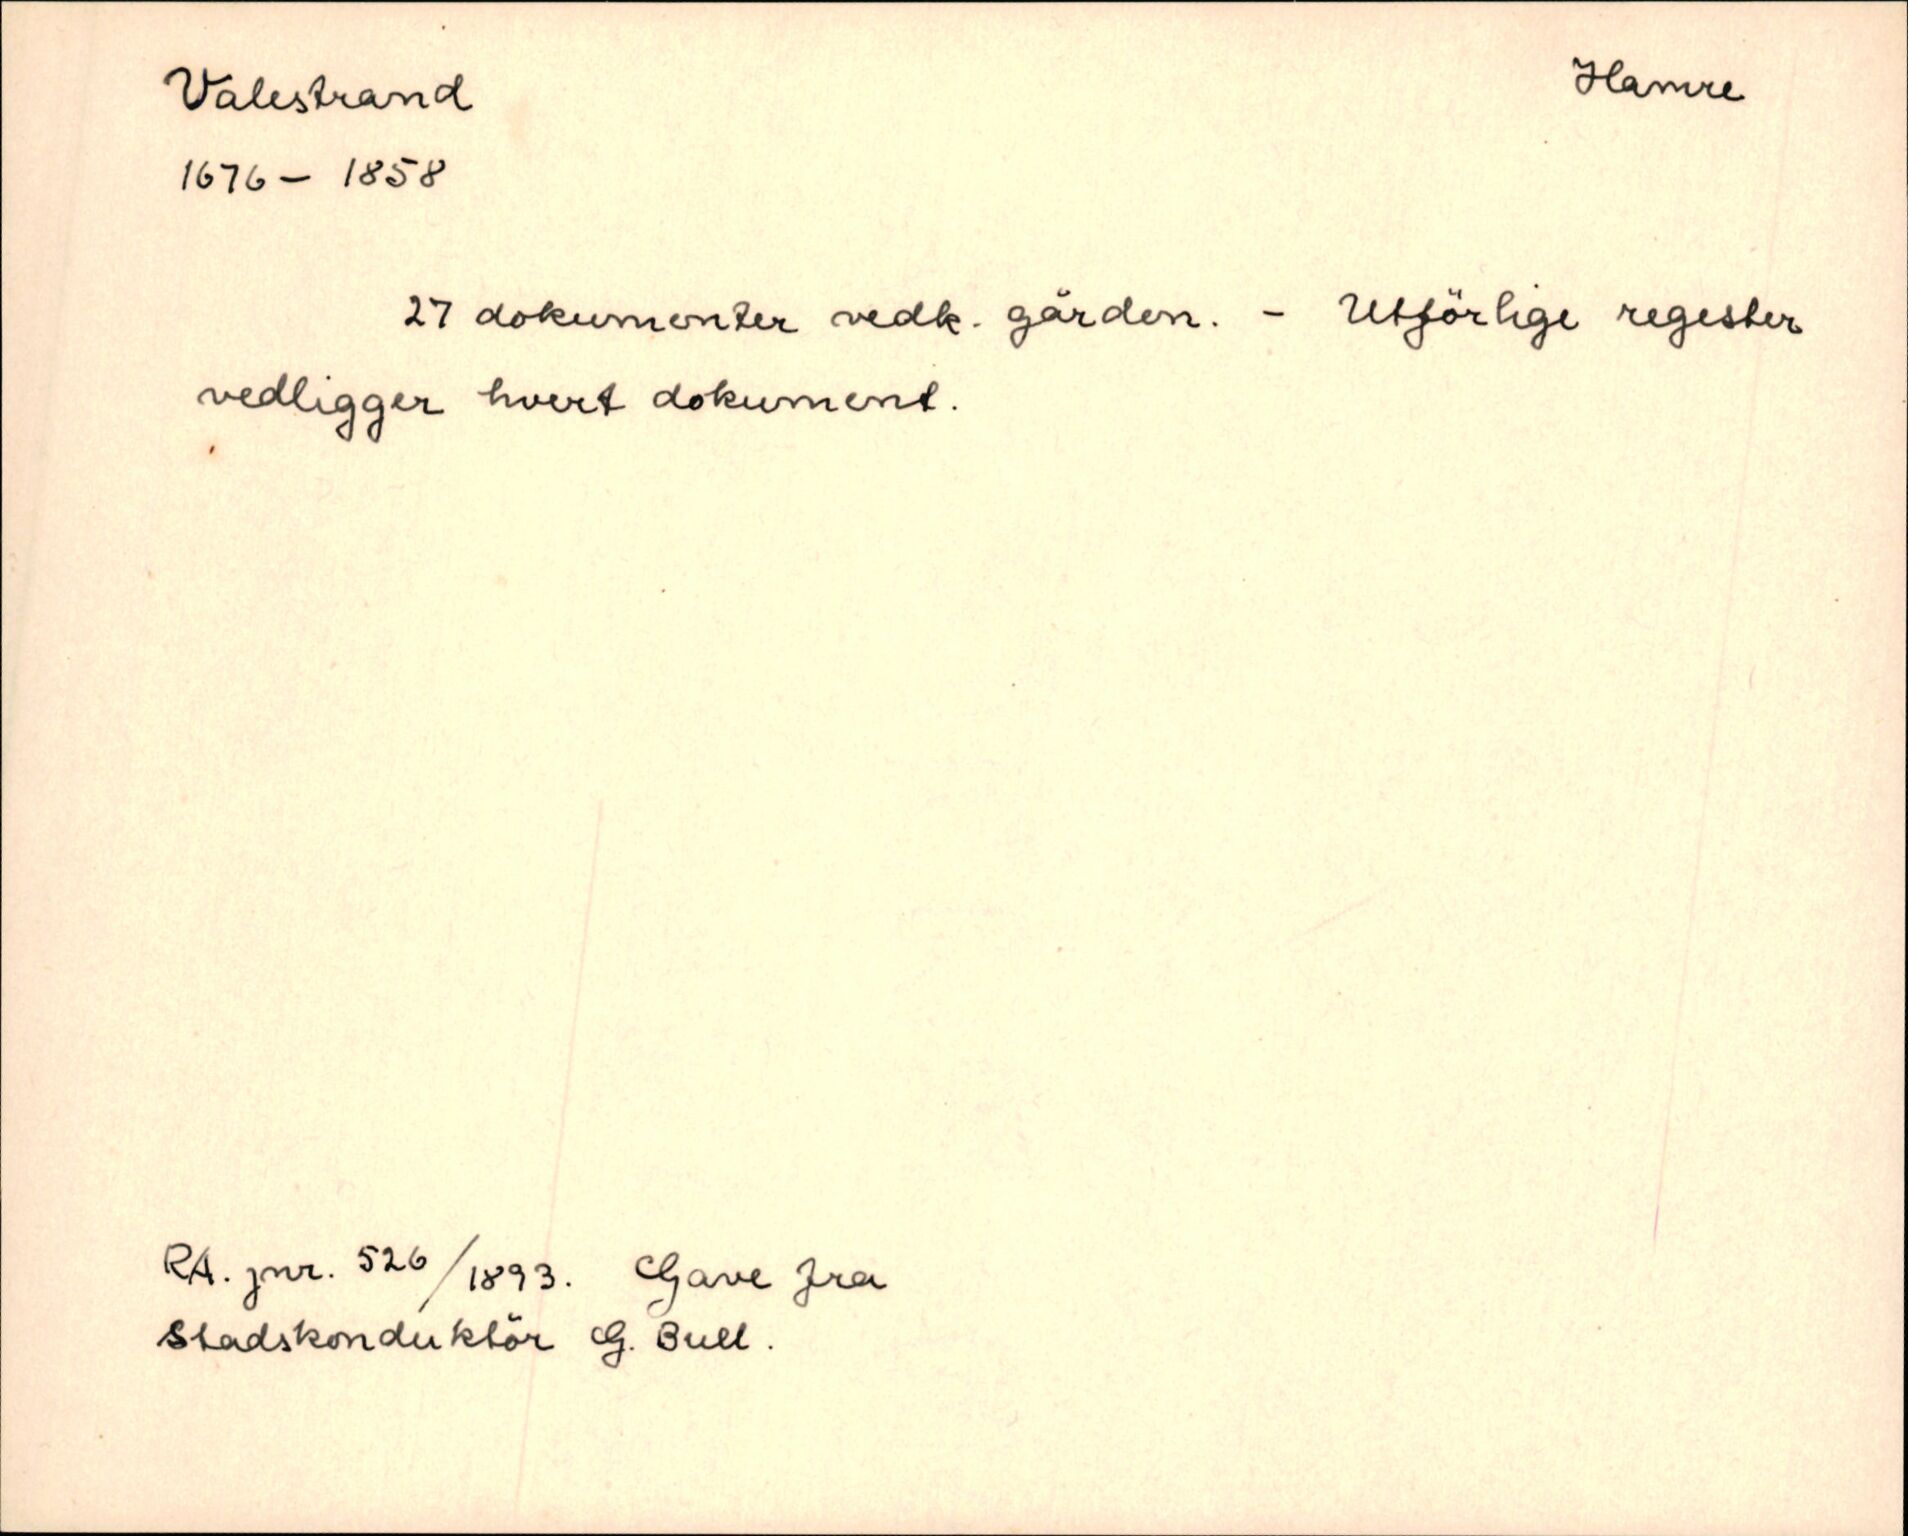 Valestrand
Hamre
1676 - 1858
27 dokumenter vedk. gården. - Utförlige regester
vedligger hvert dokument.
RA. jnr. 526/1893. Gave fra
Stadskonduktör G. Bull.